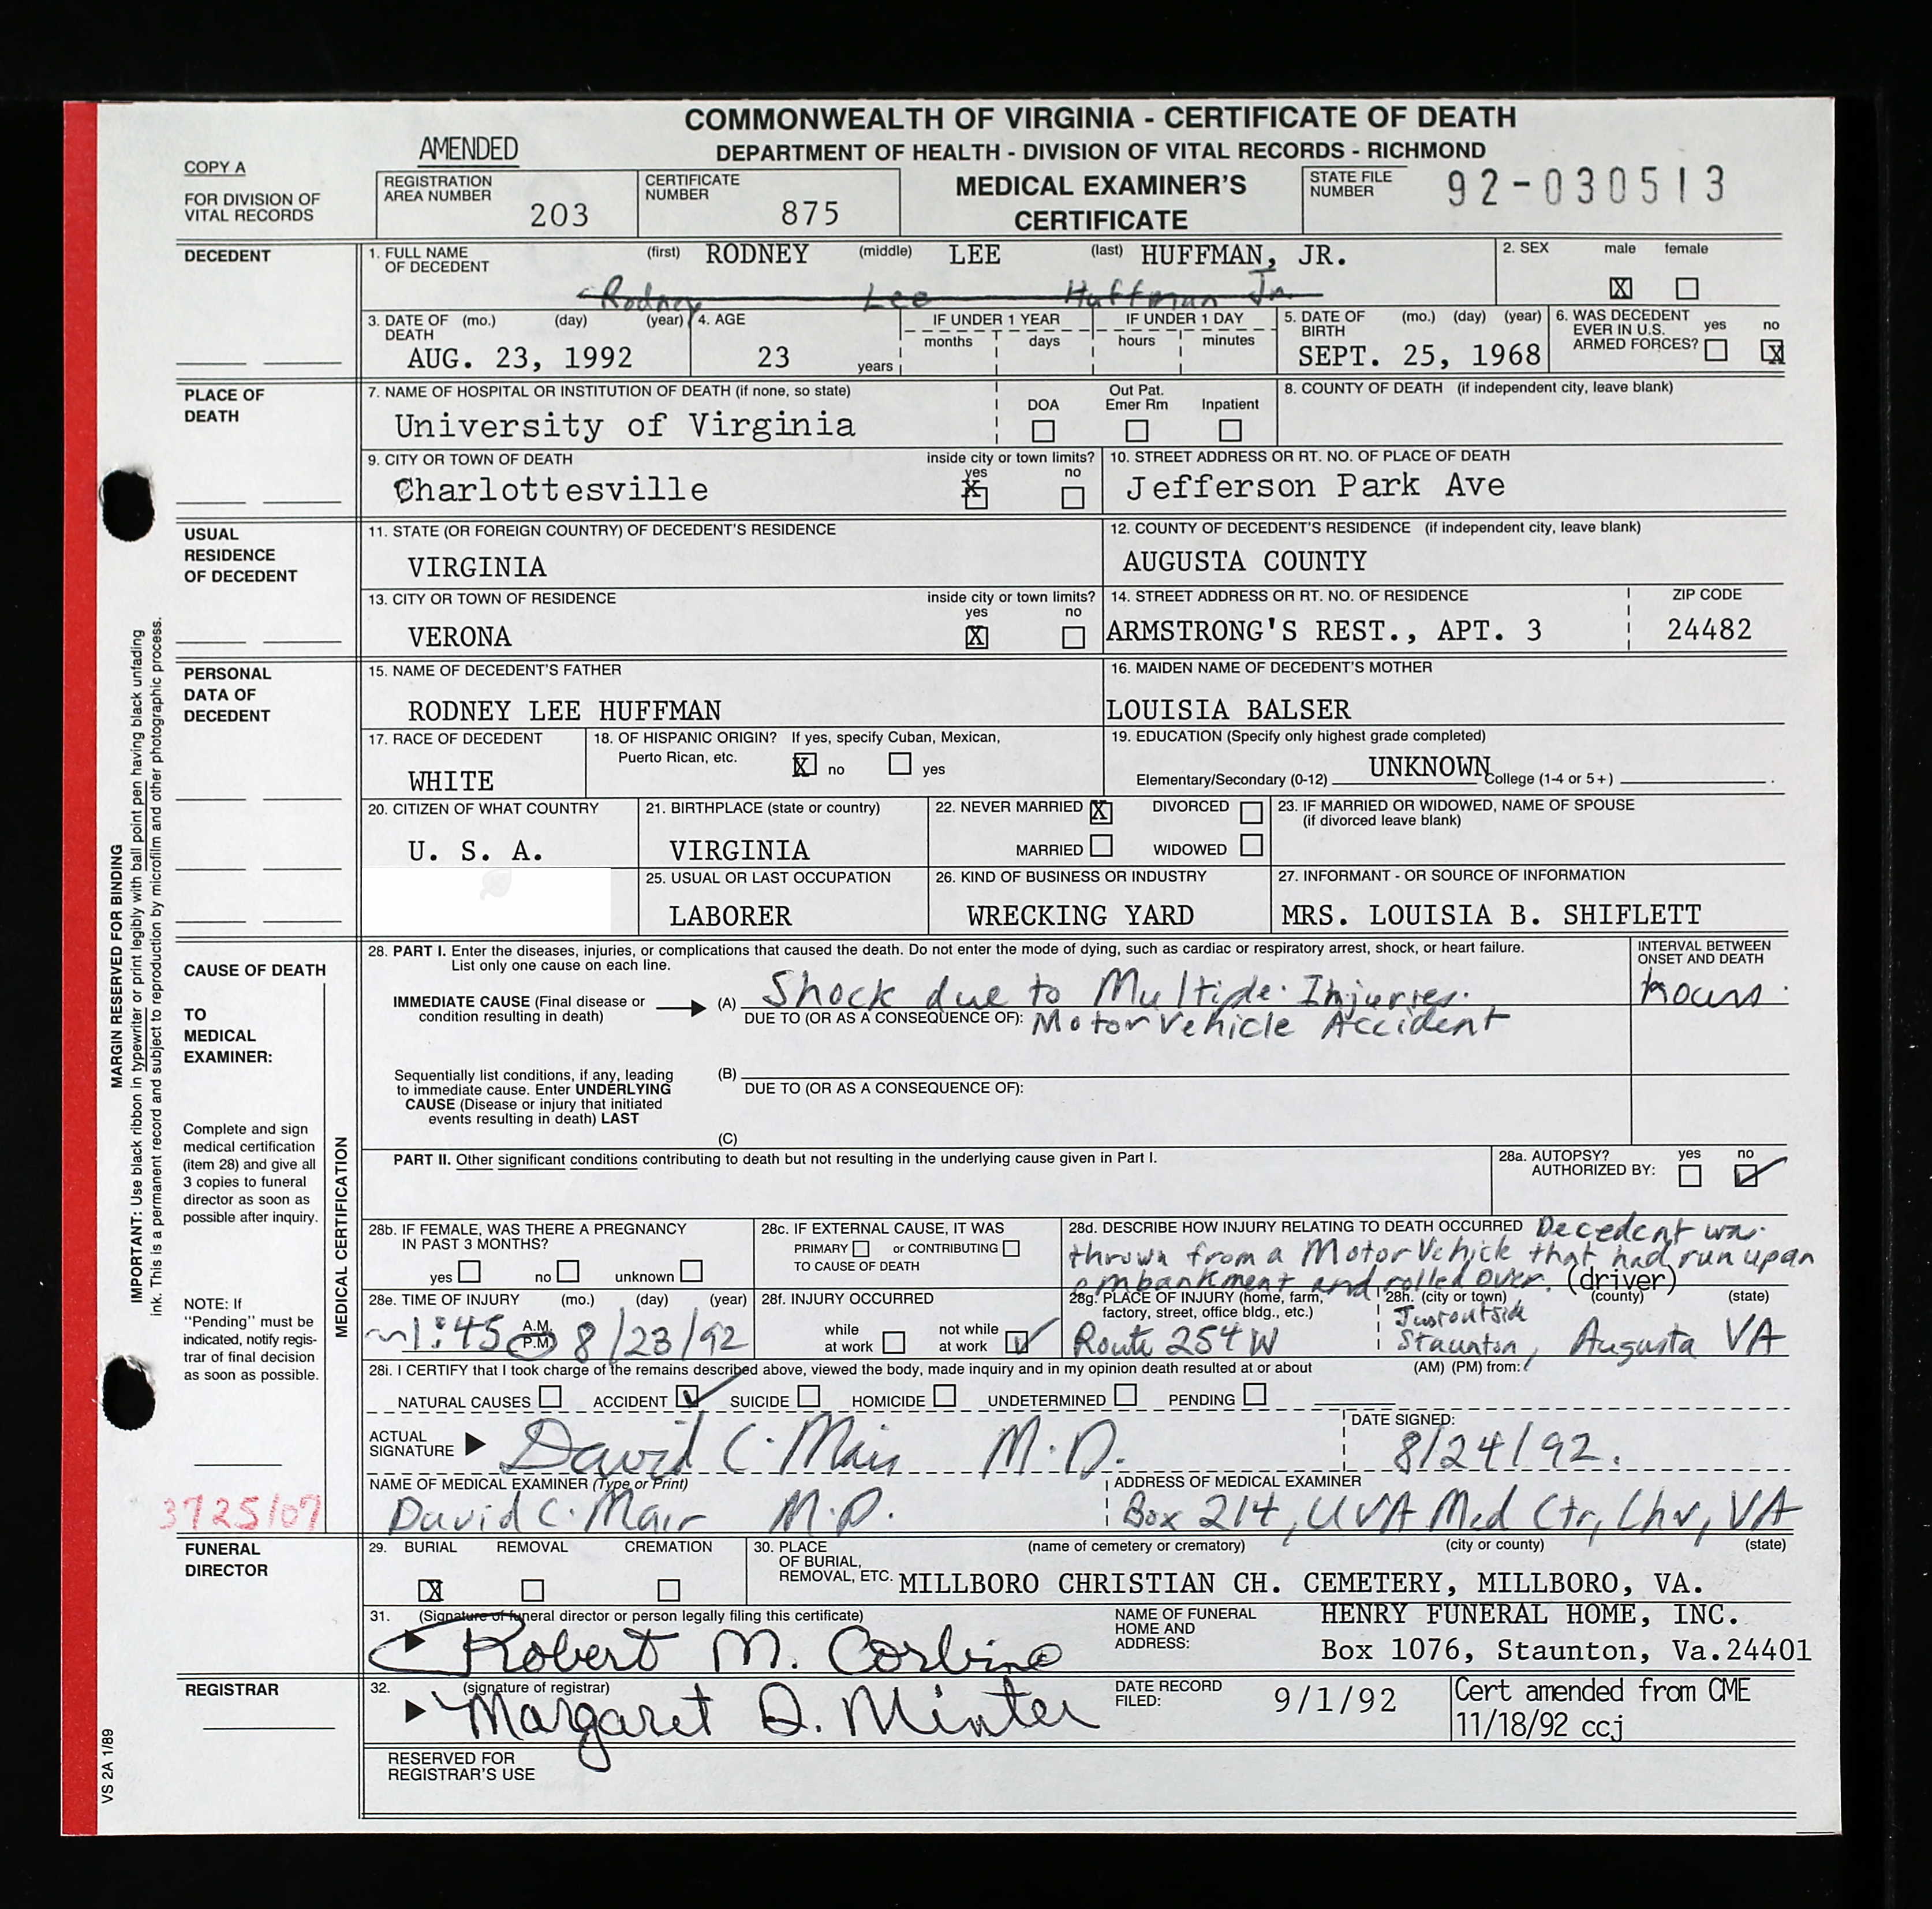 COMMONWEALTH OF VIRGINIA - CERTIFICATE OF DEATH
AMENDED
DEPARTMENT OF HEALTH - DIVISION OF VITAL RECORDS - RICHMOND
COPY A
FOR DIVISION OF
VITAL RECORDS
REGISTRATION
AREA NUMBER
203
CERTIFICATE
NUMBER
875
MEDICAL EXAMINER'S
CERTIFICATE
STATE FILE
NUMBER
92-030513
DECEDENT
1. FULL NAME
OF DECEDENT
(first) RODNEY (middle) LEE (last) HUFFMAN, JR.
Rodney Lee Huffman Jr.
2. SEX male female
X
3. DATE OF DEATH (mo.) (day) (year)
AUG. 23, 1992
4. AGE
23 years
IF UNDER 1 YEAR
months days
IF UNDER 1 DAY
hours minutes
5. DATE OF BIRTH (mo.) (day) (year)
SEPT. 25, 1968
6. WAS DECEDENT
EVER IN U.S.
ARMED FORCES?
yes no
X
PLACE OF
DEATH
7. NAME OF HOSPITAL OR INSTITUTION OF DEATH (if none, so state)
University of Virginia
DOA
Out Pat.
Emer Rm
Inpatient
8. COUNTY OF DEATH (if independent city, leave blank)
9. CITY OR TOWN OF DEATH
Charlottesville
inside city or town limits?
yes no
X
10. STREET ADDRESS OR RT. NO. OF PLACE OF DEATH
Jefferson Park Ave
USUAL
RESIDENCE
OF DECEDENT
11. STATE (OR FOREIGN COUNTRY) OF DECEDENT'S RESIDENCE
VIRGINIA
12. COUNTY OF DECEDENT'S RESIDENCE (if independent city, leave blank)
AUGUSTA COUNTY
13. CITY OR TOWN OF RESIDENCE
VERONA
inside city or town limits?
yes no
X
14. STREET ADDRESS OR RT. NO. OF RESIDENCE
ARMSTRONG'S REST., APT. 3
ZIP CODE
24482
PERSONAL
DATA OF
DECEDENT
15. NAME OF DECEDENT'S FATHER
RODNEY LEE HUFFMAN
16. MAIDEN NAME OF DECEDENT'S MOTHER
LOUISIA BALSER
17. RACE OF DECEDENT
WHITE
18. OF HISPANIC ORIGIN? If yes, specify Cuban, Mexican,
Puerto Rican, etc.
X no yes
19. EDUCATION (Specify only highest grade completed)
Elementary/Secondary (0-12) UNKNOWN College (1-4 or 5+)
20. CITIZEN OF WHAT COUNTRY
U. S. A.
21. BIRTHPLACE (state or country)
VIRGINIA
22. NEVER MARRIED X DIVORCED
MARRIED WIDOWED
23. IF MARRIED OR WIDOWED, NAME OF SPOUSE
(if divorced leave blank)
25. USUAL OR LAST OCCUPATION
LABORER
26. KIND OF BUSINESS OR INDUSTRY
WRECKING YARD
27. INFORMANT - OR SOURCE OF INFORMATION
MRS. LOUISIA B. SHIFLETT
MARGIN RESERVED FOR BINDING
IMPORTANT: Use black ribbon in typewriter or print legibly with ball point pen having black unfading
ink. This is a permanent record and subject to reproduction by microfilm and other photographic process.
CAUSE OF DEATH
TO
MEDICAL
EXAMINER:
Complete and sign
medical certification
(item 28) and give all
3 copies to funeral
director as soon as
possible after inquiry.
NOTE: If
"Pending" must be
indicated, notify regis-
trar of final decision
as soon as possible.
MEDICAL CERTIFICATION
28. PART I. Enter the diseases, injuries, or complications that caused the death. Do not enter the mode of dying, such as cardiac or respiratory arrest, shock, or heart failure.
List only one cause on each line.
INTERVAL BETWEEN
ONSET AND DEATH
IMMEDIATE CAUSE (Final disease or
condition resulting in death)
(A) Shock due to Multiple Injuries.
hours
DUE TO (OR AS A CONSEQUENCE OF): Motor Vehicle Accident
Sequentially list conditions, if any, leading
to immediate cause. Enter UNDERLYING
CAUSE (Disease or injury that initiated
events resulting in death) LAST
(B)
DUE TO (OR AS A CONSEQUENCE OF):
(C)
PART II. Other significant conditions contributing to death but not resulting in the underlying cause given in Part I.
28a. AUTOPSY?
AUTHORIZED BY:
yes no
28b. IF FEMALE, WAS THERE A PREGNANCY
IN PAST 3 MONTHS?
yes no unknown
28c. IF EXTERNAL CAUSE, IT WAS
PRIMARY or CONTRIBUTING
TO CAUSE OF DEATH
28d. DESCRIBE HOW INJURY RELATING TO DEATH OCCURRED Decedent was
thrown from a Motor Vehicle that had run up an
embankment and rolled over. (driver)
28e. TIME OF INJURY (mo.) (day) (year)
~1:45 A.M. P.M. 8/23/92
28f. INJURY OCCURRED
while
at work
not while
at work
28g. PLACE OF INJURY (home, farm,
factory, street, office bldg., etc.)
Route 254 W
28h. (city or town) (county) (state)
Just outside
Staunton, Augusta VA
28i. I CERTIFY that I took charge of the remains described above, viewed the body, made inquiry and in my opinion death resulted at or about (AM) (PM) from:
NATURAL CAUSES ACCIDENT SUICIDE HOMICIDE UNDETERMINED PENDING
ACTUAL
SIGNATURE
David C. Mair M.D.
DATE SIGNED:
8/24/92.
NAME OF MEDICAL EXAMINER (Type or Print)
David C. Mair M.D.
ADDRESS OF MEDICAL EXAMINER
Box 214, UVA Med Ctr, Chv, VA
3725/07
FUNERAL
DIRECTOR
29. BURIAL REMOVAL CREMATION
X
30. PLACE
OF BURIAL,
REMOVAL, ETC.
(name of cemetery or crematory) (city or county) (state)
MILLBORO CHRISTIAN CH. CEMETERY, MILLBORO, VA.
31. (Signature of funeral director or person legally filing this certificate)
Robert M. Corbino
NAME OF FUNERAL
HOME AND
ADDRESS:
HENRY FUNERAL HOME, INC.
Box 1076, Staunton, Va.24401
REGISTRAR
32. (signature of registrar)
Margaret D. Minter
DATE RECORD
FILED:
9/1/92
Cert amended from CME
11/18/92 ccj
RESERVED FOR
REGISTRAR'S USE
VS 2A 1/89